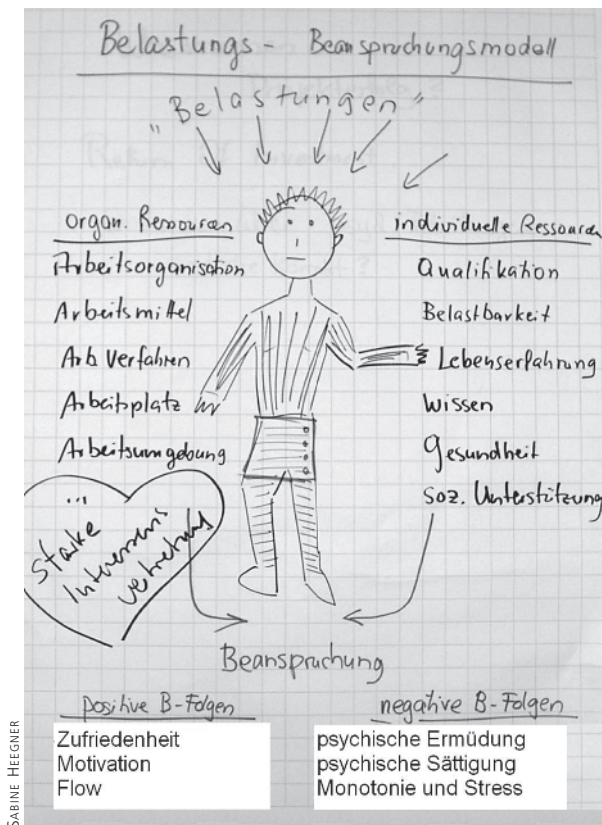 Belastungs - Beanspruchungsmodell
"Belastungen"
organ. Ressourcen
Arbeitsorganisation
Arbeitsmittel
Arb Verfahren
Arbeitsplatz
Arbeitsumgebung
...
Starke
Interessens
vertretung
individuelle Ressourcen
Qualifikation
Belastbarkeit
Lebenserfahrung
Wissen
Gesundheit
Soz. Unterstützung
Beanspruchung
positive B-Folgen
Zufriedenheit
Motivation
Flow
negative B-Folgen
psychische Ermüdung
psychische Sättigung
Monotonie und Stress
SABINE HEEGNER